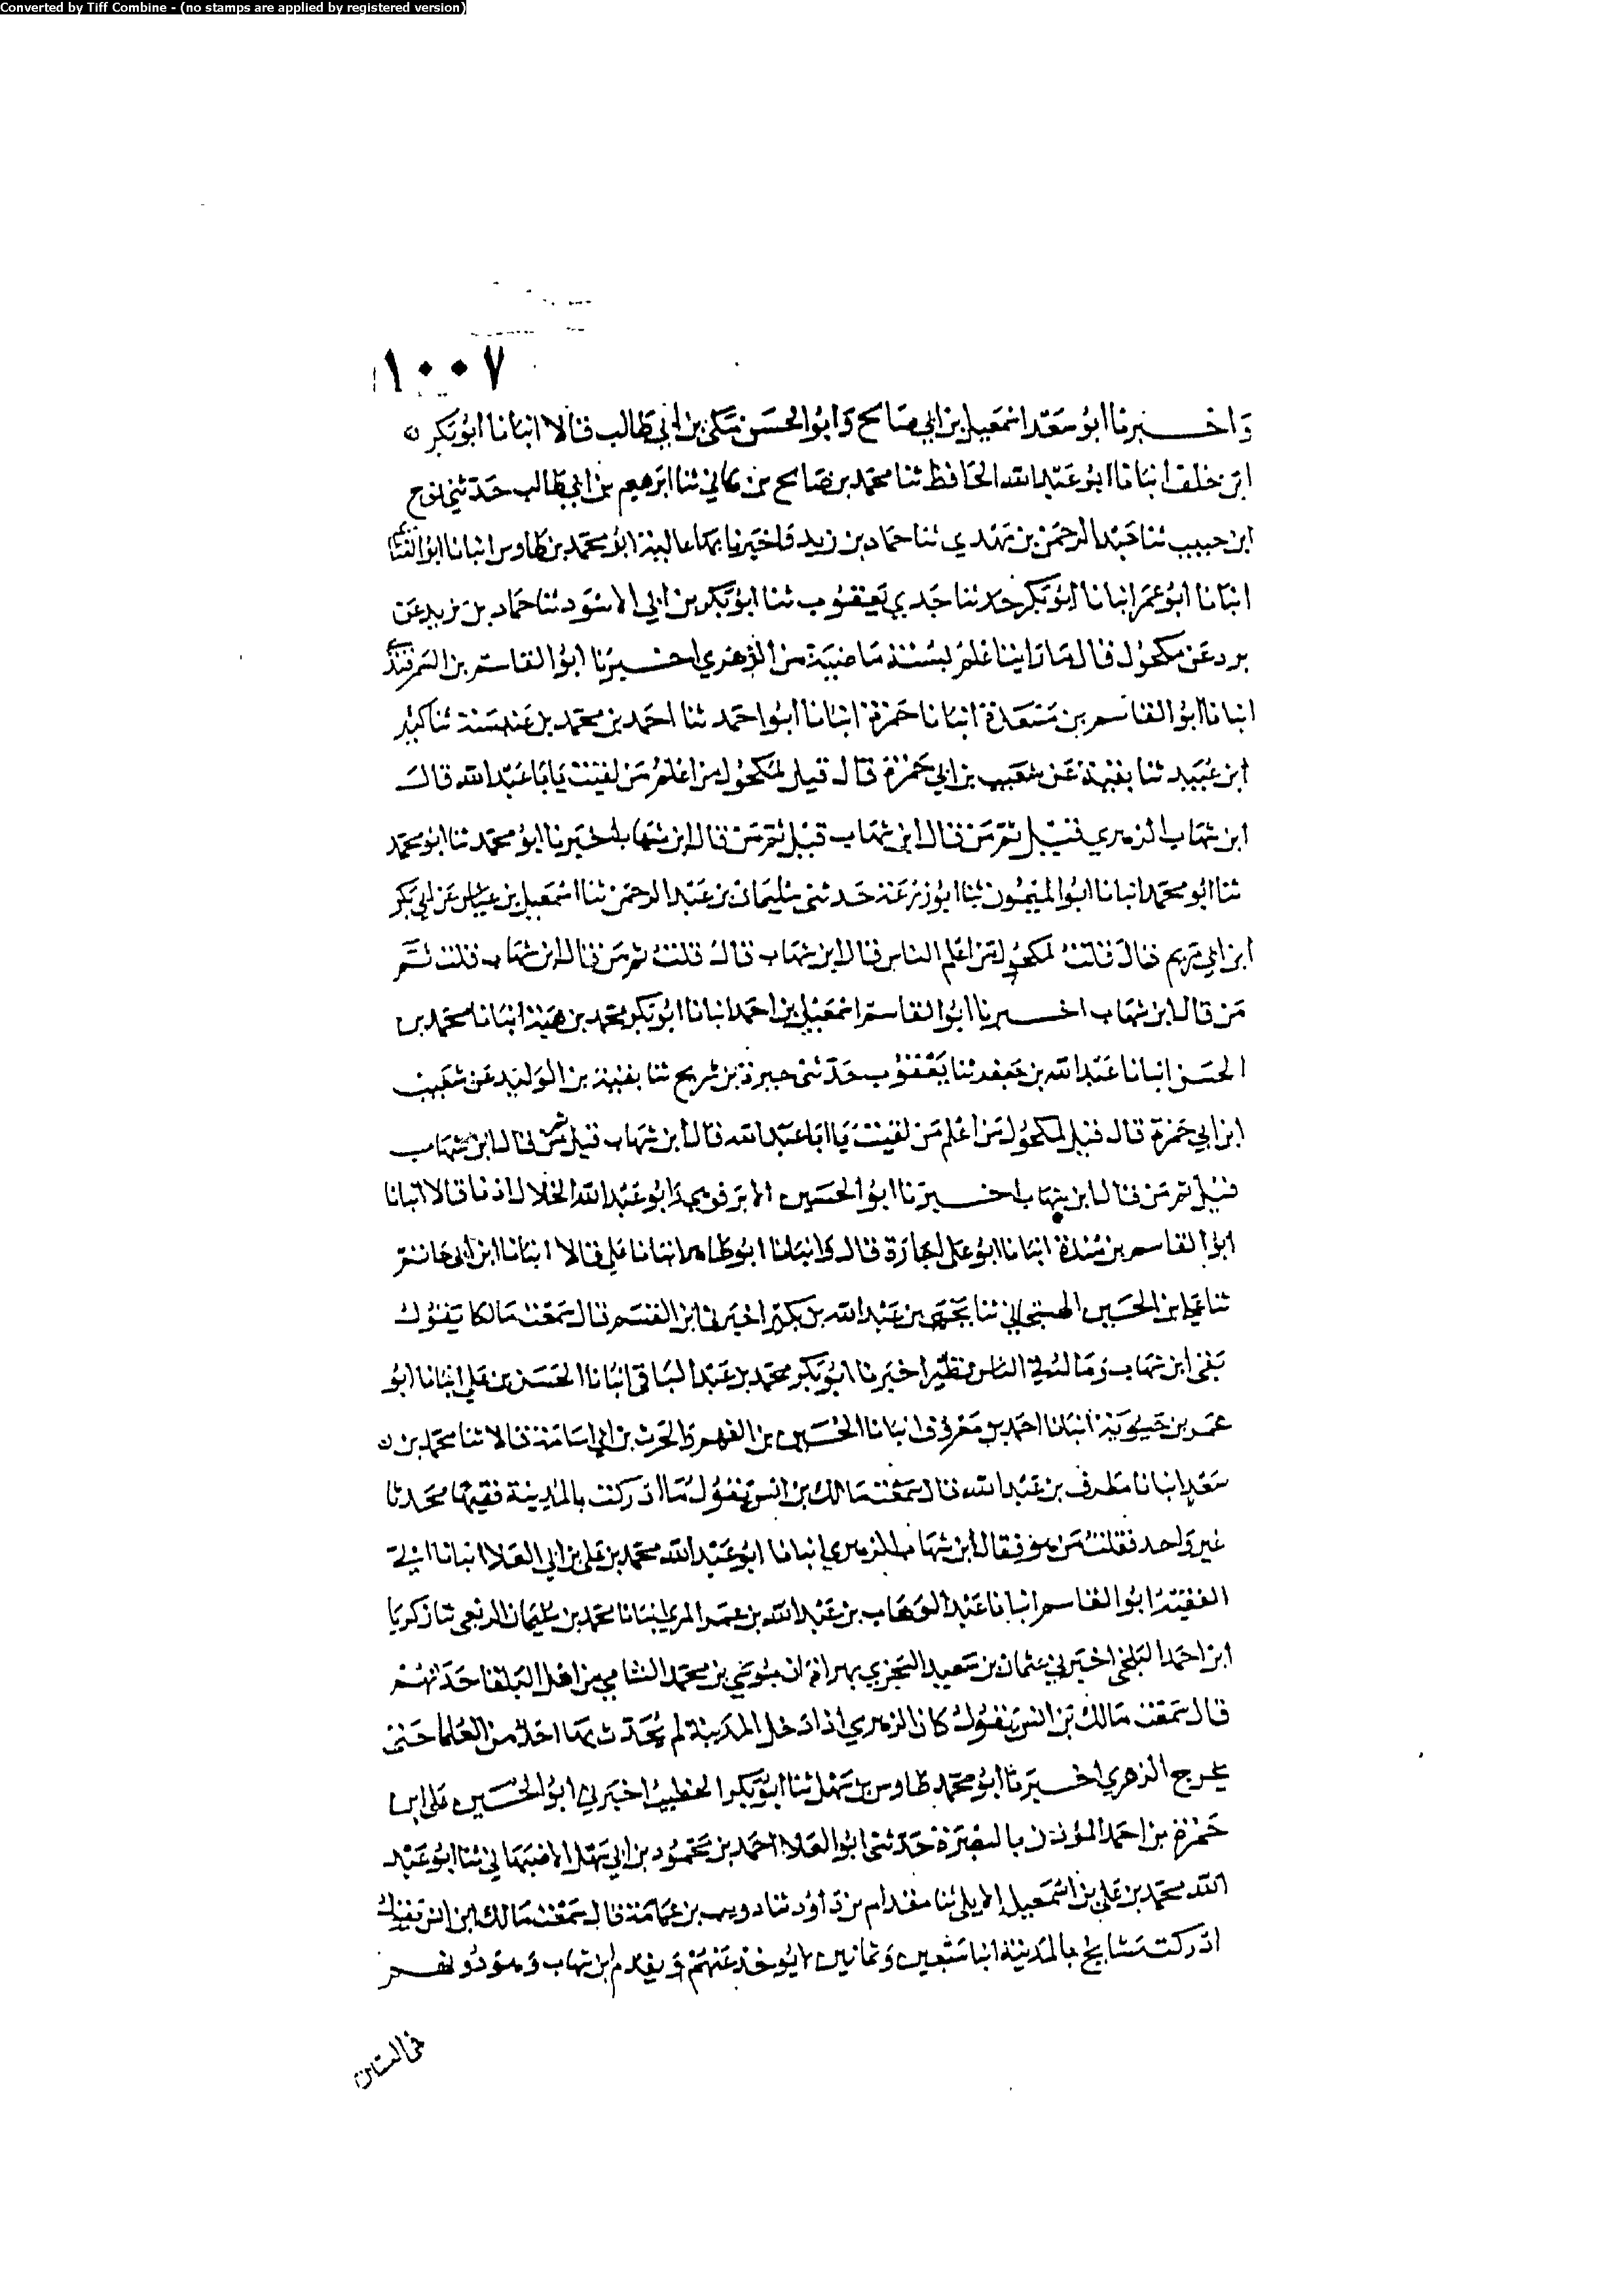 Converted by Tiff Combine - (no stamps are applied by registered version)
١٠٠٧
واخبرنا ابو سعد اسمعيل بن ابي صالح وابو الحسن مكي بن ابي طالب قالا انبانا ابو بكر
ابن خلف انبانا ابو عبد الله الحافظ ثنا محمد بن صالح بن هاني ثنا ابرهيم بن ابي طالب حدثني نوح
ابن حبيب ثنا عبد الرحمن بن مهدي ثنا حماد بن زيد فاخبرنا بها عالية ابو محمد بن طاوس انبانا ابو الغنائم
انبانا ابو عمر انبانا ابو بكر حدثنا جدي يعقوب ثنا ابو بكر بن ابي الاسود ثنا حماد بن زيد عن
برد عن مكحول قال ما راينا اعلم بسنة ماضية من الزهري اخبرنا ابو القاسم بن السمرقندي
انبانا ابو القاسم بن مسعدة انبانا حمزة انبانا ابو احمد ثنا احمد بن محمد بن عنبسة ثنا كثير
ابن عبيد ثنا بقية عن شعيب بن ابي حمزة قال قيل لمكحول من اعلم من لقيت يابا عبد الله قال
ابن شهاب الزهري قيل ثم من قال ابن شهاب قيل ثم من قال ابن شهاب اخبرنا ابو محمد ثنا ابو محمد
ثنا ابو محمد انبانا ابو الميمون ثنا ابو زرعة حدثني سليمان بن عبد الرحمن ثنا اسمعيل بن عياش عن ابي بكر
ابن ابي مريم قال قلت لمكحول من اعلم الناس قال ابن شهاب قال قلت ثم من قال ابن شهاب قلت ثم
من قال ابن شهاب اخبرنا ابو القاسم اسمعيل بن احمد انبانا ابو بكر محمد بن هبة انبانا محمد بن
الحسن انبانا عبد الله بن جعفر ثنا يعقوب حدثني حيوة بن شريح ثنا بقية بن الوليد عن شعيب
ابن ابي حمزة قال قيل لمكحول من اعلم من لقيت يا ابا عبد الله قال ابن شهاب قيل ثم من قال ابن شهاب
قيل ثم من قال ابن شهاب اخبرنا ابو الحسين الابرقوهي وابو عبد الله الخلال اذنا قالا انبانا
ابو القاسم بن مندة انبانا ابو علي اجازة قال وانبانا ابو طاهر انبانا علي قالا انبانا ابن ابي حاتم
ثنا علي بن الحسين الهسنجاني ثنا يحيى بن عبد الله بن بكير اخبرني ابن القسم قال سمعت مالكا يقول
بقي ابن شهاب وما له في الناس نظير اخبرنا ابو بكر محمد بن عبد الباقي انبانا الحسن بن علي انبانا ابو
عمر بن حيوية انبانا احمد بن معروف انبانا الحسين بن الفهم والحرث بن ابي اسامة قالا ثنا محمد بن
سعد انبانا مطرف بن عبد الله قال سمعت مالك بن انس يقول ما ادركت بالمدينة فقيها محدثا
غير واحد فقلت من هو فقال ابن شهاب الزهري انبانا ابو عبد الله محمد بن علي بن ابي العلا انبانا ابي
الفقيه ابو القاسم انبانا عبد الوهاب بن عبد الله بن عمر المري انبانا محمد بن سليمان الربعي ثنا زكريا
ابن احمد البلخي اخبرني عثمان بن سعيد السجزي بهراة ان موسي بن محمد الشامي من اهل البلقا حدثهم
قال سمعت مالك بن انس يقول كان الزهري اذا دخل المدينة لم يحدث بها احد من العلما حتى
يخرج الزهري اخبرنا ابو محمد طاوس بن سهل ثنا ابو بكر الخطيب اخبرني ابو الحسين علي ابن
حمزة بن احمد المؤذن بالبصرة حدثني ابو العلا احمد بن محمود بن ابي سهل الاصبهاني ثنا ابو عبد
الله محمد بن علي بن اسمعيل الايلي ثنا مقدام بن داود ثنا دويب بن عمامة قال سمعت مالك ابن انس يقول
ادركت مشايخ بالمدينة ابنا سبعين وثمانين لا يوخذ عنهم ويقدم ابن شهاب وهو دونهم
في السن